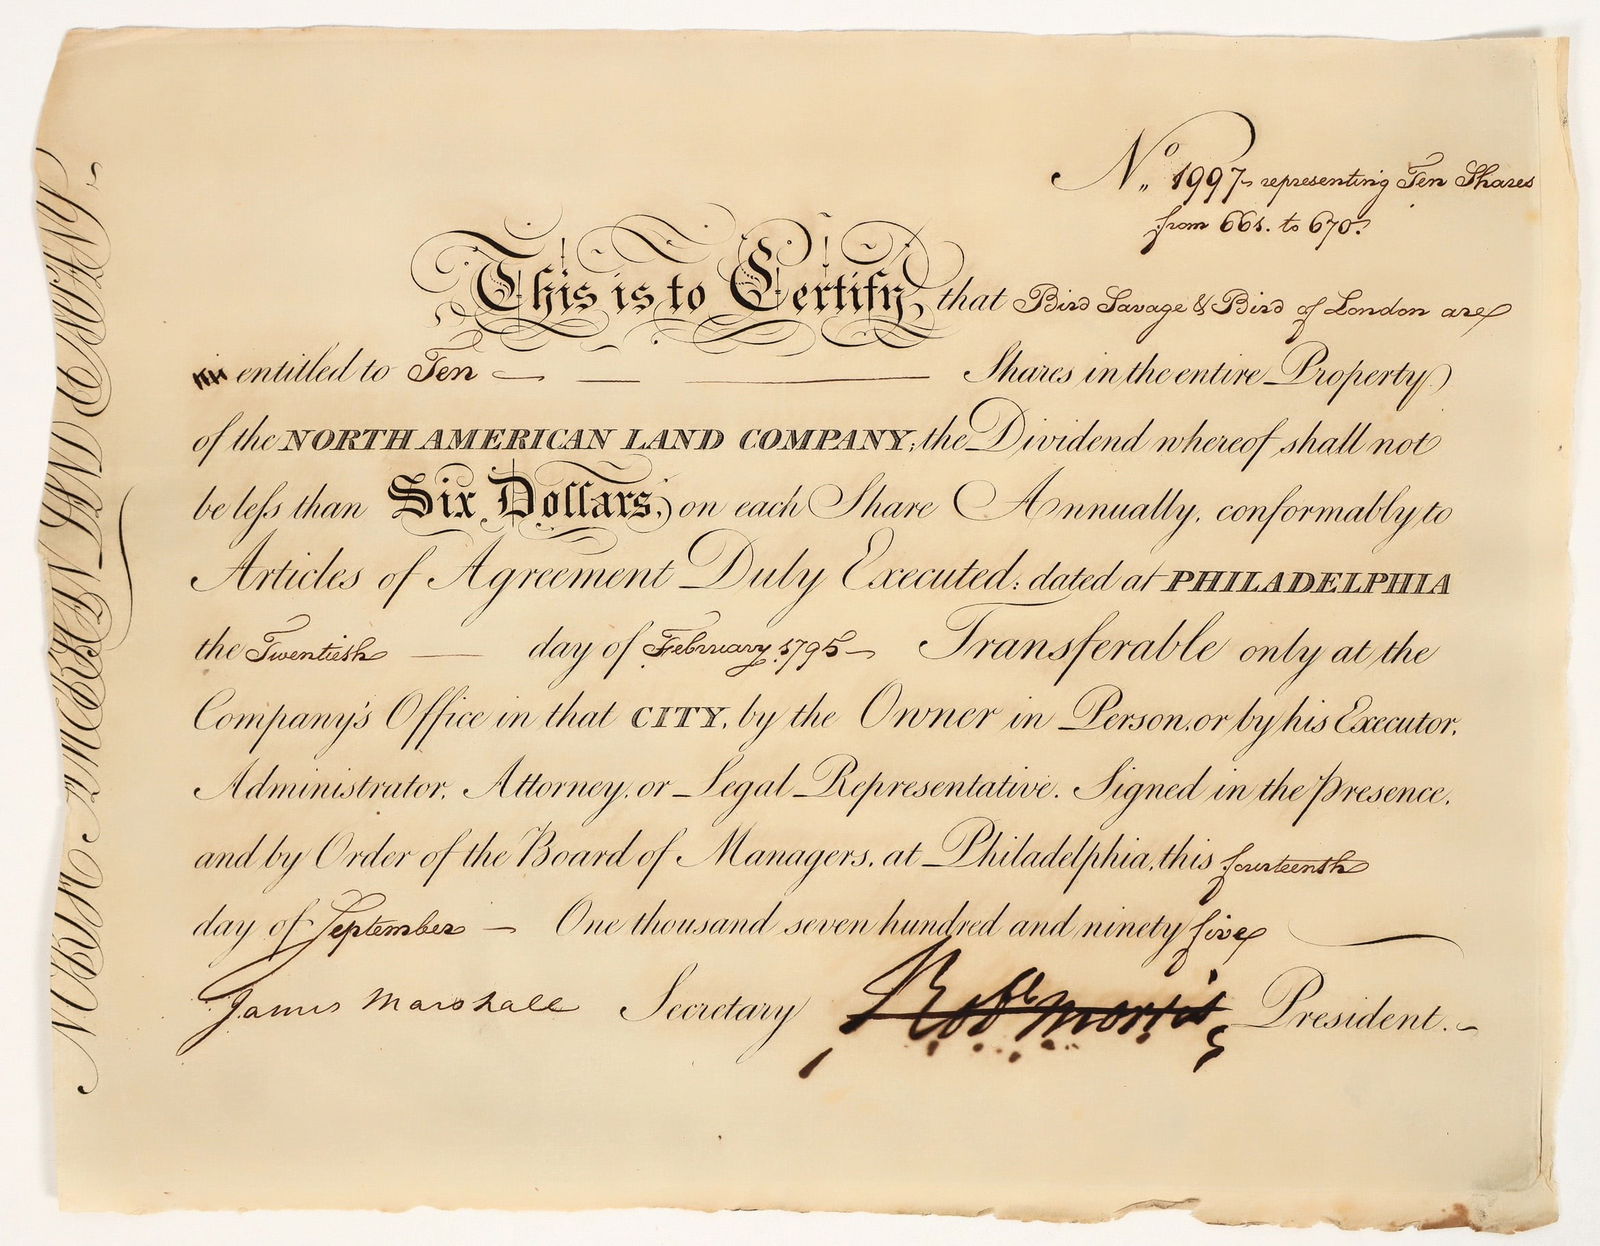 No. 1997 representing Ten Shares
from 661. to 670.
This is to Certify, that Bird Savage & Bird of London are
entitled to Ten Shares in the entire Property
of the NORTH AMERICAN LAND COMPANY; the Dividend whereof shall not
be leſs than Six Dollars, on each Share Annually, conformably to
Articles of Agreement Duly Executed: dated at PHILADELPHIA
the Twentieth day of February 1795 Transferable only at the
Company's Office in that CITY, by the Owner in Person, or by his Executor,
Administrator, Attorney, or Legal Representative. Signed in the Presence,
and by Order of the Board of Managers, at Philadelphia, this fourteenth
day of September One thousand seven hundred and ninety five
James Marshall Secretary Robt Morris President.